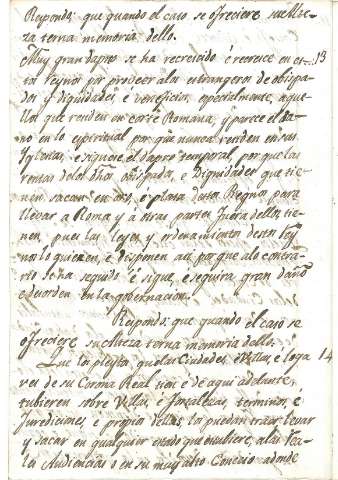 Responde: que quando el caso se ofreciere su Alte-
za terna memoria dello.
Muy gran daño se ha recrecido é recrece en es- 13
tos Reynos por proveer a los estrangeros de obispa-
dos y dignidades é beneficios, especialmente, aque-
llos que residen en corte Romana, y parece el da-
ño en lo espiritual por que nunca residen en sus
Iglesias, é siguese el daño temporal, por que las
rentas de los dhos obispados, e Dignidades que tie-
nen, sacan en oro, é plata destos Regnos para
llevar a Roma y á otras partes fuera dellos, tie-
nen, pues las leyes y ordenamientos destos Rey-
nos lo quieren, é disponen assi, por que a lo contra-
rio se ha seguido é sigue, é seguira gran daño
é desorden en la gobernacion.
Responde: que quando el caso se
ofreciere su Alteza terna memoria dello.
Que los pleytos que las Ciudades, é Villas, é loga 14
res de su Corona Real sin é de aqui adelante,
tubieren sobre Villas, é fortalezas, terminos, é
Jurediciones, é propios dellas, los puedan traer, llevar
y sacar en qualquier estado que estubiere, a las Rea-
les Audiencias ó en su muy alto Consejo adonde